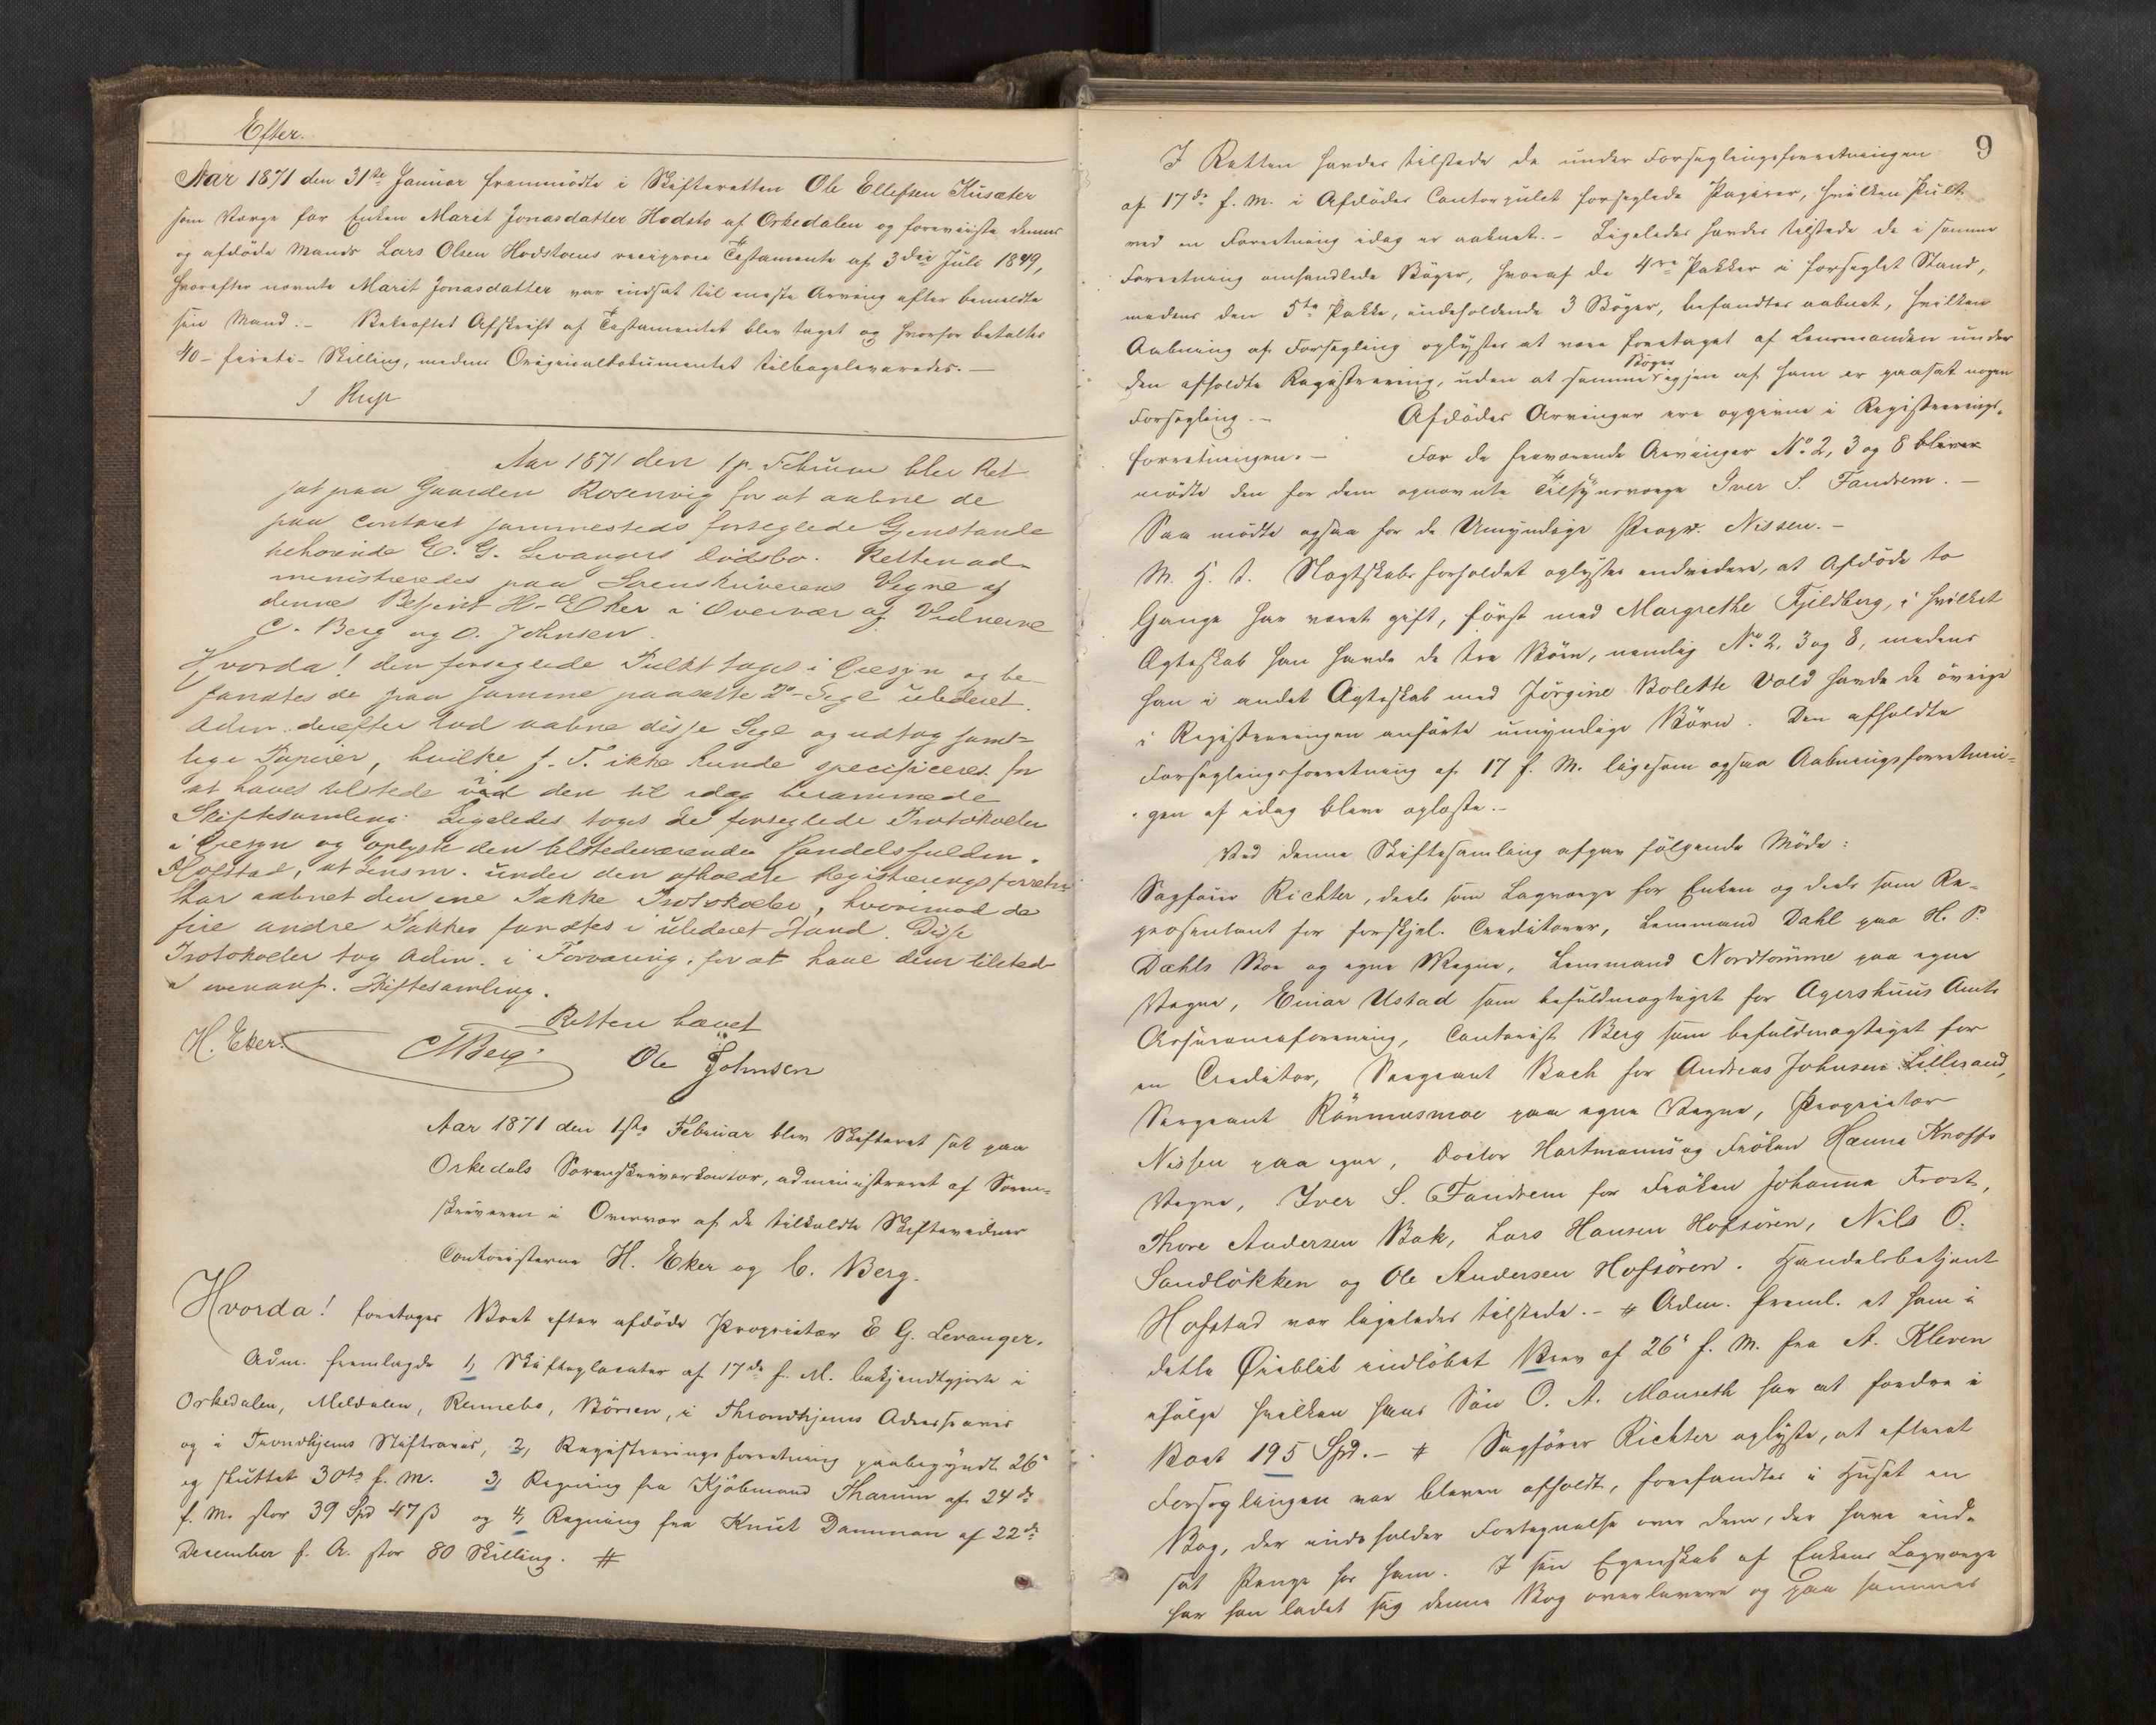 Efter.
Aar 1871 den 31te Januar fremmödte i Skifteretten Ole Ellefsen Kusæter
som Værge for Enken Marit Jonasdatter Hodsto af Orkedalen og foreviiste dennes
og afdöde Mands Lars Olsen Hodstoens reciproce Testamente af 3die Juli 1849,
hvorefter nævnte Marit Jonasdatter var indsat til eneste Arving efter bemeldte
sin Mand. - Bekræftet Afskrift af Testamentet blev taget og hvorfor betaltes
40 - fireti - Skilling, medens Originaldokumentet tilbageleveredes. -
Aar 1871 den 1st. Februar blev Ret
sat paa Gaarden Rosenvig for at aabne de
paa Contoret sammesteds forseglede Gjenstande
tilhörende E. G. Levangers Dödsbo. Retten ad-
ministreredes paa Sorenskriverens Vegne af
dennes Betjent H. Eker i Overvær af Vidnerne
C. Berg og O. Johnsen.
Hvorda! den forseglede Pulkt toges i Öiesyn og be-
fandtes de paa samme paasatte 2de Segl ubederet.
Adm. derefter lod aabne disse Segl og udtog samt-
lige Papirer, hvilke f. T. ikke kunde specificeres for
at haves tilstede ved den til idag berammede
Skiftesamling. Ligeledes toges de forseglede Protokoller
i Öiesyn og oplyste den tilstedeværende Handelsfuldm.
Hofstad, at Lensm. under den afholdte Registreringsforretn.
har aabnet den ene Pakke Protokoller, hvorimod de
fire andre Pakker fandtes i ubederet Stand. Disse
Protokoller tog Adm. i Forvaring for at have dem tilstede
i ovenanf. Skiftesamling.
Retten hævet
H. Eker. C Berg. Ole Johnsen
Aar 1871 den 1ste Februar blev Skifteret sat paa
Orkedals Sorenskriverkontor, administreret af Soren-
skriveren i Overvær af de tilkaldte Skiftevidner
Contoristerne H. Eker og C. Berg.
Hvorda! foretoges Boet efter afdöde Proprietær E G. Levanger.
Adm. fremlagde 1, Skifteplacater af 17de f. M. bekjendtgjorte i
Orkedalen, Meldalen, Rennebo, Börsen, i Throndhjems Adresseavis
og i Trondhjems Stiftsavis, 2, Registreringsforretning paabegyndt 26de
og sluttet 30te f. M. 3, Regning fra Kjöbmand Tharum af 24de
f. M. stor 39 Spd 47 ß og 4, Regning fra Knut Damman af 22de
December f. A. stor 80 Skilling. #
9
I Retten havdes tilstede de under Forseglingsforretningen
af 17de f. M. i Afdödes Contorpult forseglede Papirer, hvilken Pult
ved en Forretning idag er aabnet. - Ligeledes havdes tilstede de i samme
Forretning omhandlede Böger, hvoraf de 4re Pakker i forseglet Stand,
medens den 5te Pakke, indeholdende 3 Böger, befandtes aabnet, hvilken
Aabning af Forsegling oplystes at være foretaget af Lensmanden under
den afholdte Registrering, uden at samme Böger igjen af ham er paasat nogen
Forsegling. - Afdödes Arvinger ere opgivne i Registrerings-
forretningen. - For de fraværende Arvinger No 2, 3 og 8 bleven
mödte den for dem opnævnte Tilsynsværge Iver S. Fandrem. -
Saa mödte ogsaa for de Umyndige Propr. Nissen. -
M. H. t. Slægtskabsforholdet oplystes endvidere, at Afdöde to
Gange har været gift, först med Margrethe Fjeldberg, i hvilket
Ægteskab han havde de tre Börn, nemlig No 2, 3 og 8, medens
han i andet Ægteskab med Jörgine Bolette Vold havde de övrige
i Registreringen anförte umyndige Börn. Den afholdte
Forseglingsforretning af 17 f. M. ligesom ogsaa Aabningsforretnin-
gen af idag bleve oplæste. -
Ved denne Skiftesamling afgav fölgende Möde:
Sagförer Richter, deels som Lagværge for Enken og deels som Re-
præsentant for forskjel. Creditorer, Lensmand Dahl paa H. P.
Dæhls Boe og egne Vegne, Lensmand Nordtömme paa egne
Vegne, Einar Ustad som befuldmægtiget for Agershuus Amts
Assuranceforening, Contorist Berg som befuldmægtiget for
en Creditor, Sergeant Bach for Andreas Johnsen Lillesand,
Sergeant Rönmusmoe paa egne Vegne, Proprietær
Nissen paa egne, Doctor Hartmanns og Fröken Hanna Knoffs
Vegne, Iver S. Fandrem for Fröken Johanna Frost,
Thore Andersen Bak, Lars Hansen Hofsören, Nils O.
Sandlökken og Ole Andersen Hofsören. Handelsbetjent
Hofstad var ligeledes tilstede. - # Adm. freml. et ham i
dette Öieblik indlöbet Brev af 26de f. M. fra A. Kleven
ifölge hvilken hans Sön O. A. Mauseth har at fordre i
Boet 195 Spd. - # Sagförer Richter oplyste, at efterat
Forseglingen var bleven afholdt, forefandtes i Huset en
Bog, der indeholder Fortegnelse over dem, der have ind-
sat Penge hos ham. I sin Egenskab af Enkens Lagværge
har han ladet sig denne Bog overlevere og paa sammes